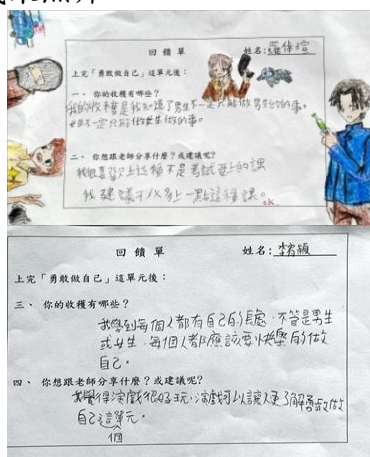 回饋單
姓名:羅偉瑄
上完「勇敢做自己」這單元後:
一、你的收穫有哪些?
我的收穫是我知道了男生不一定只能做男生做的事。
女生不一定只能做女生做的事。
二、你想跟老師分享什麼?或建議呢?
我很喜歡上這種不是考試要上的課
我建議可以多上一點這種課。
ok
回饋單
姓名:李宥穎
上完「勇敢做自己」這單元後:
三、你的收穫有哪些?
我學到每個人都有自己的長處,不管是男生
或女生,每個人都應該要快樂的做
自己。
四、你想跟老師分享什麼?或建議呢?
我覺得演戲很好玩,演戲可以讓人更了解勇敢做
自己這單元。
個